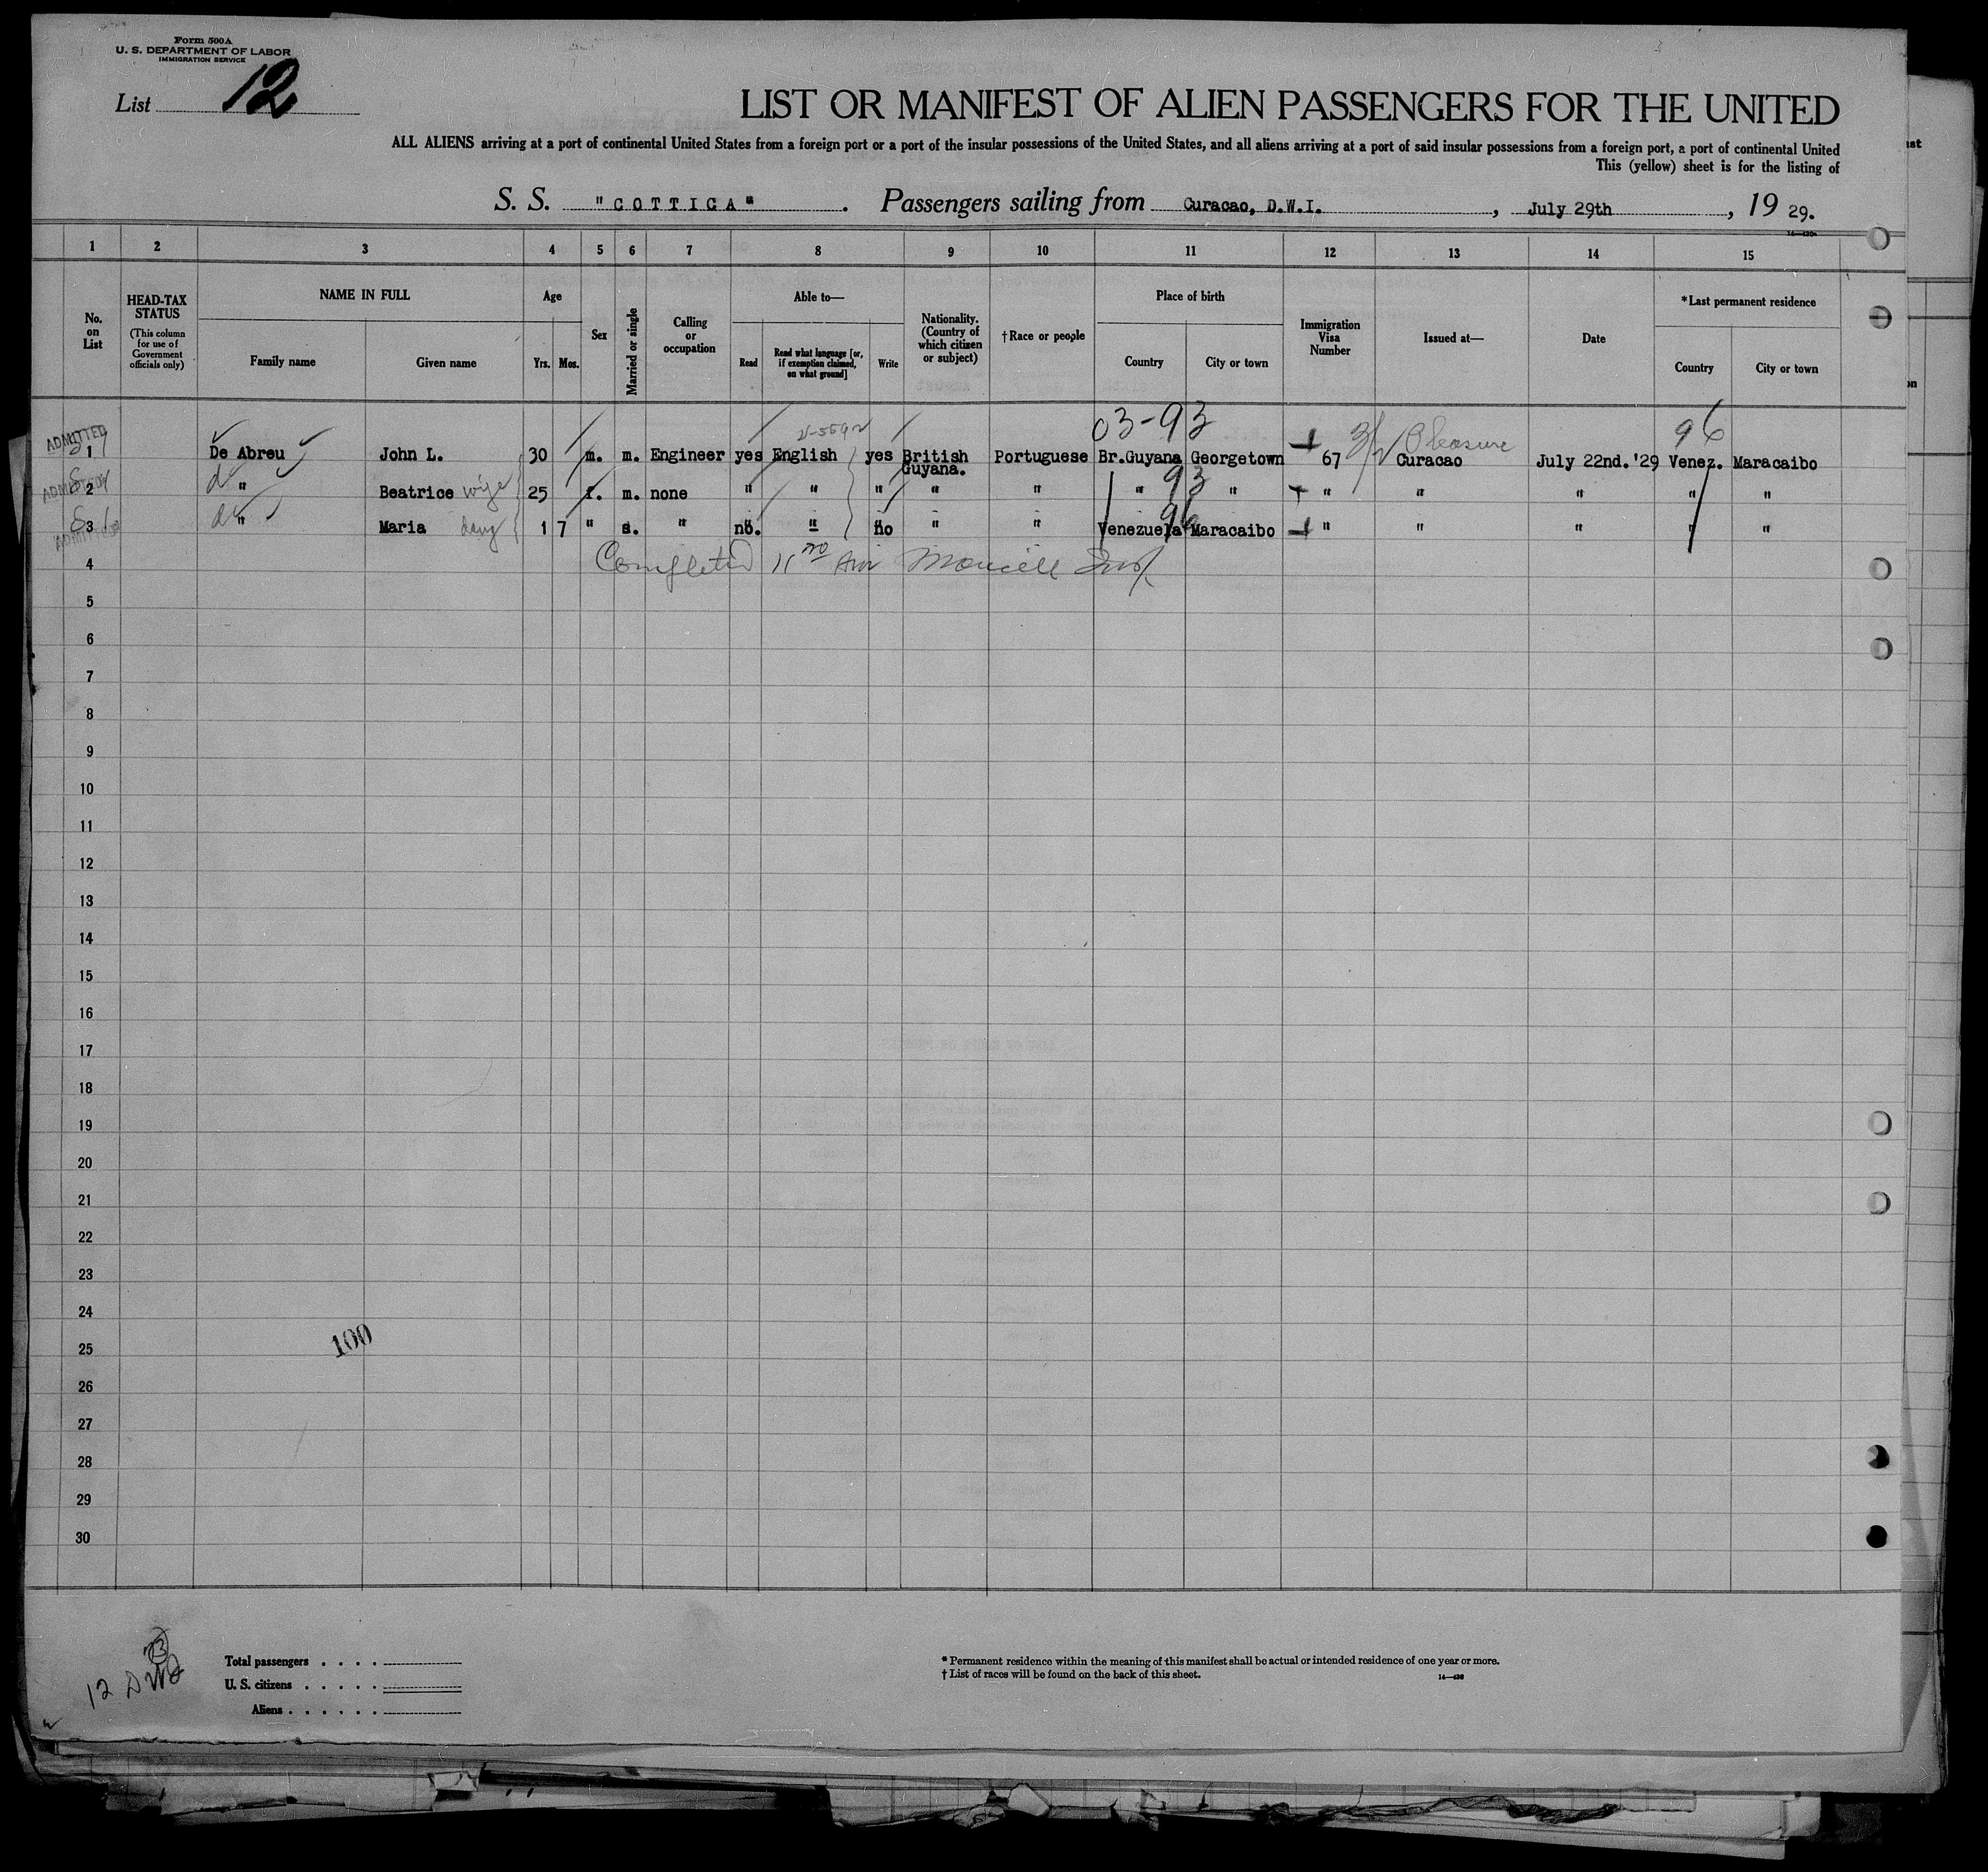 Form 500A
U. S. DEPARTMENT OF LABOR
IMMIGRATION SERVICE
List 12
LIST OR MANIFEST OF ALIEN PASSENGERS FOR THE UNITED
ALL ALIENS arriving at a port of continental United States from a foreign port or a port of the insular possessions of the United States, and all aliens arriving at a port of said insular possessions from a foreign port, a port of continental United
This (yellow) sheet is for the listing of
S. S. "COTTICA". Passengers sailing from Curacao, D.W.I., July 29th, 19 29.
1 2 3 4 5 6 7 8 9 10 11 12 13 14 15
No. on List
HEAD-TAX STATUS
(This column for use of Government officials only)
NAME IN FULL
Family name
Given name
Age
Yrs. Mos.
Sex
Married or single
Calling or occupation
Able to—
Read
Read what language [or, if exemption claimed, on what ground]
Write
Nationality. (Country of which citizen or subject)
†Race or people
Place of birth
Country
City or town
Immigration Visa Number
Issued at—
Date
*Last permanent residence
Country
City or town
03-93
96
Pleasure
ADMITTED
1 De Abreu John L. 30 m. m. Engineer yes English yes British Guyana. Portuguese Br.Guyana Georgetown 67 Curacao July 22nd.'29 Venez. Maracaibo
2 " Beatrice wife 25 f. m. none " " " " " " 93 " " " " " "
3 " Maria daug 1 7 " s. " no. " no " " Venezuela 96 Maracaibo " " " " "
4
Completed
5
6
7
8
9
10
11
12
13
14
15
16
17
18
19
20
21
22
23
24
25
100
26
27
28
29
30
12
Total passengers . . . .
U. S. citizens . . . . .
Aliens . . . . . .
* Permanent residence within the meaning of this manifest shall be actual or intended residence of one year or more.
† List of races will be found on the back of this sheet.